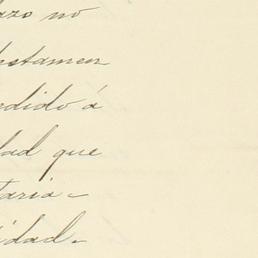 azo no
estamen
endido á
dad que
taria-
idad-